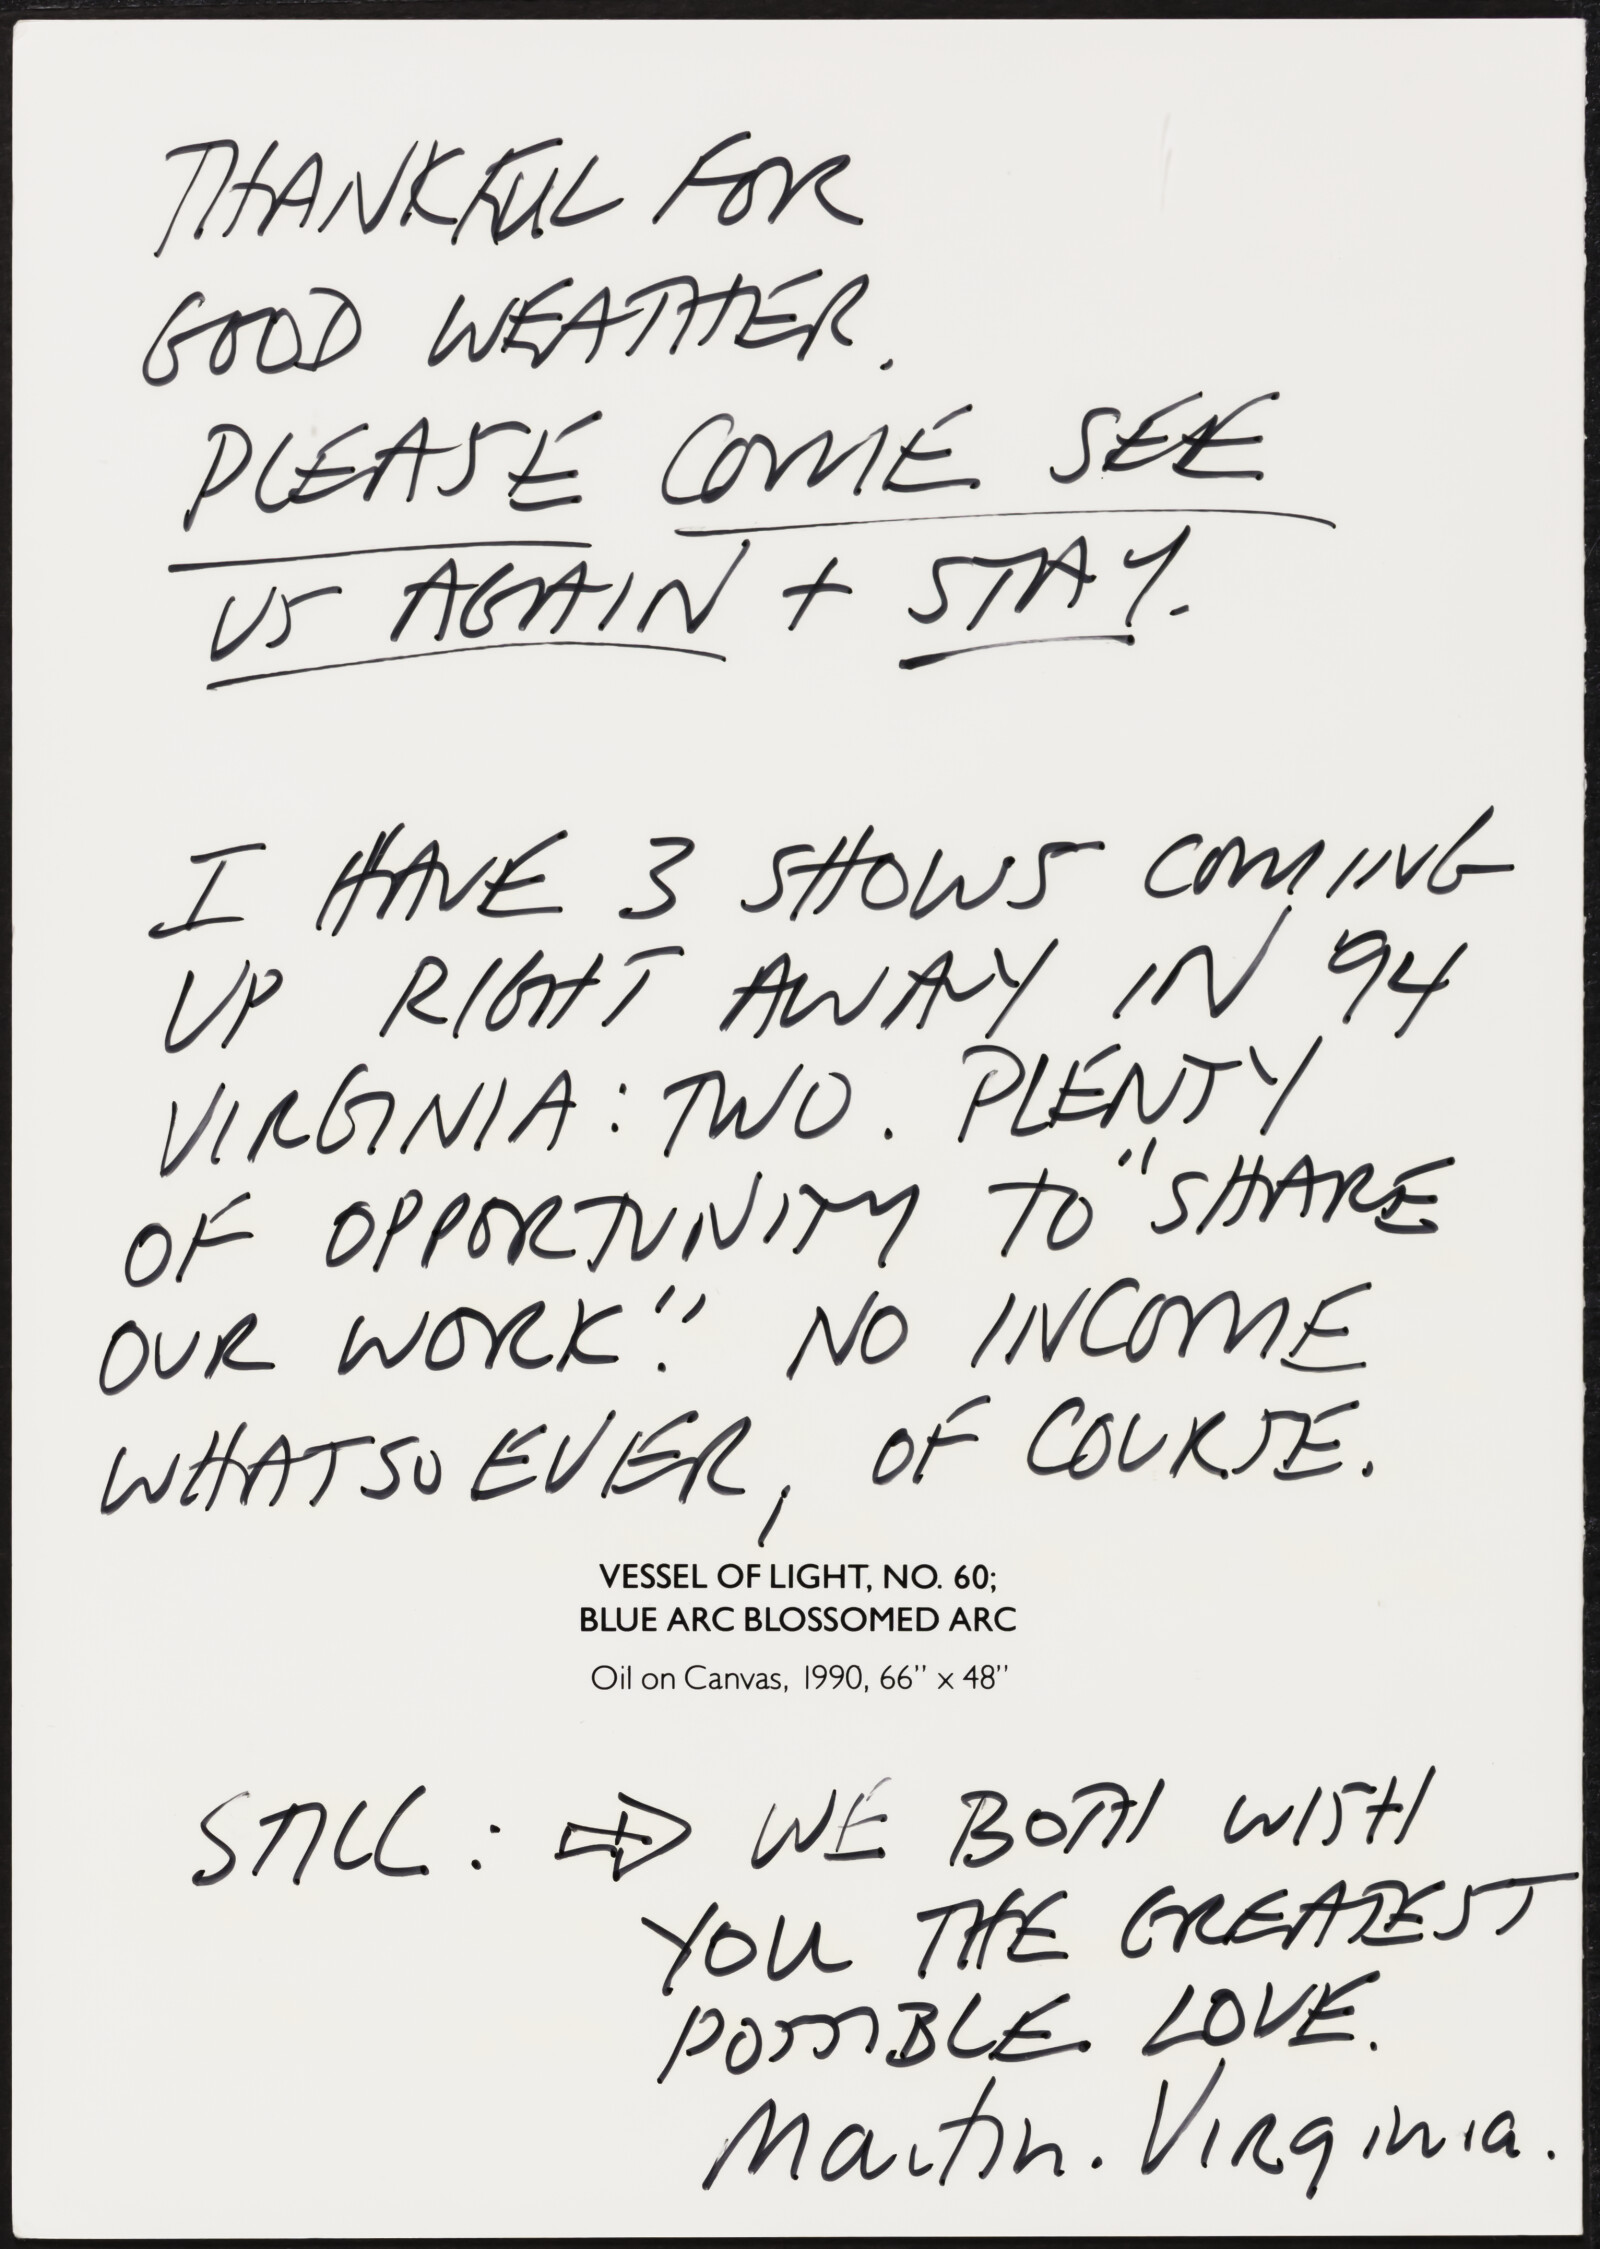 THANKFUL FOR
GOOD WEATHER.
PLEASE COME SEE
US AGAIN + STAY.
I HAVE 3 SHOWS COMING
UP RIGHT AWAY IN '94
VIRGINIA: TWO. PLENTY
OF OPPORTUNITY TO "SHARE
OUR WORK." NO INCOME
WHATSOEVER, OF COURSE.
VESSEL OF LIGHT, NO. 60;
BLUE ARC BLOSSOMED ARC
Oil on Canvas, 1990, 66" x 48"
STILL: ⇨ WE BOTH WISH
YOU THE GREATEST
POSSIBLE LOVE.
Martin. Virginia.